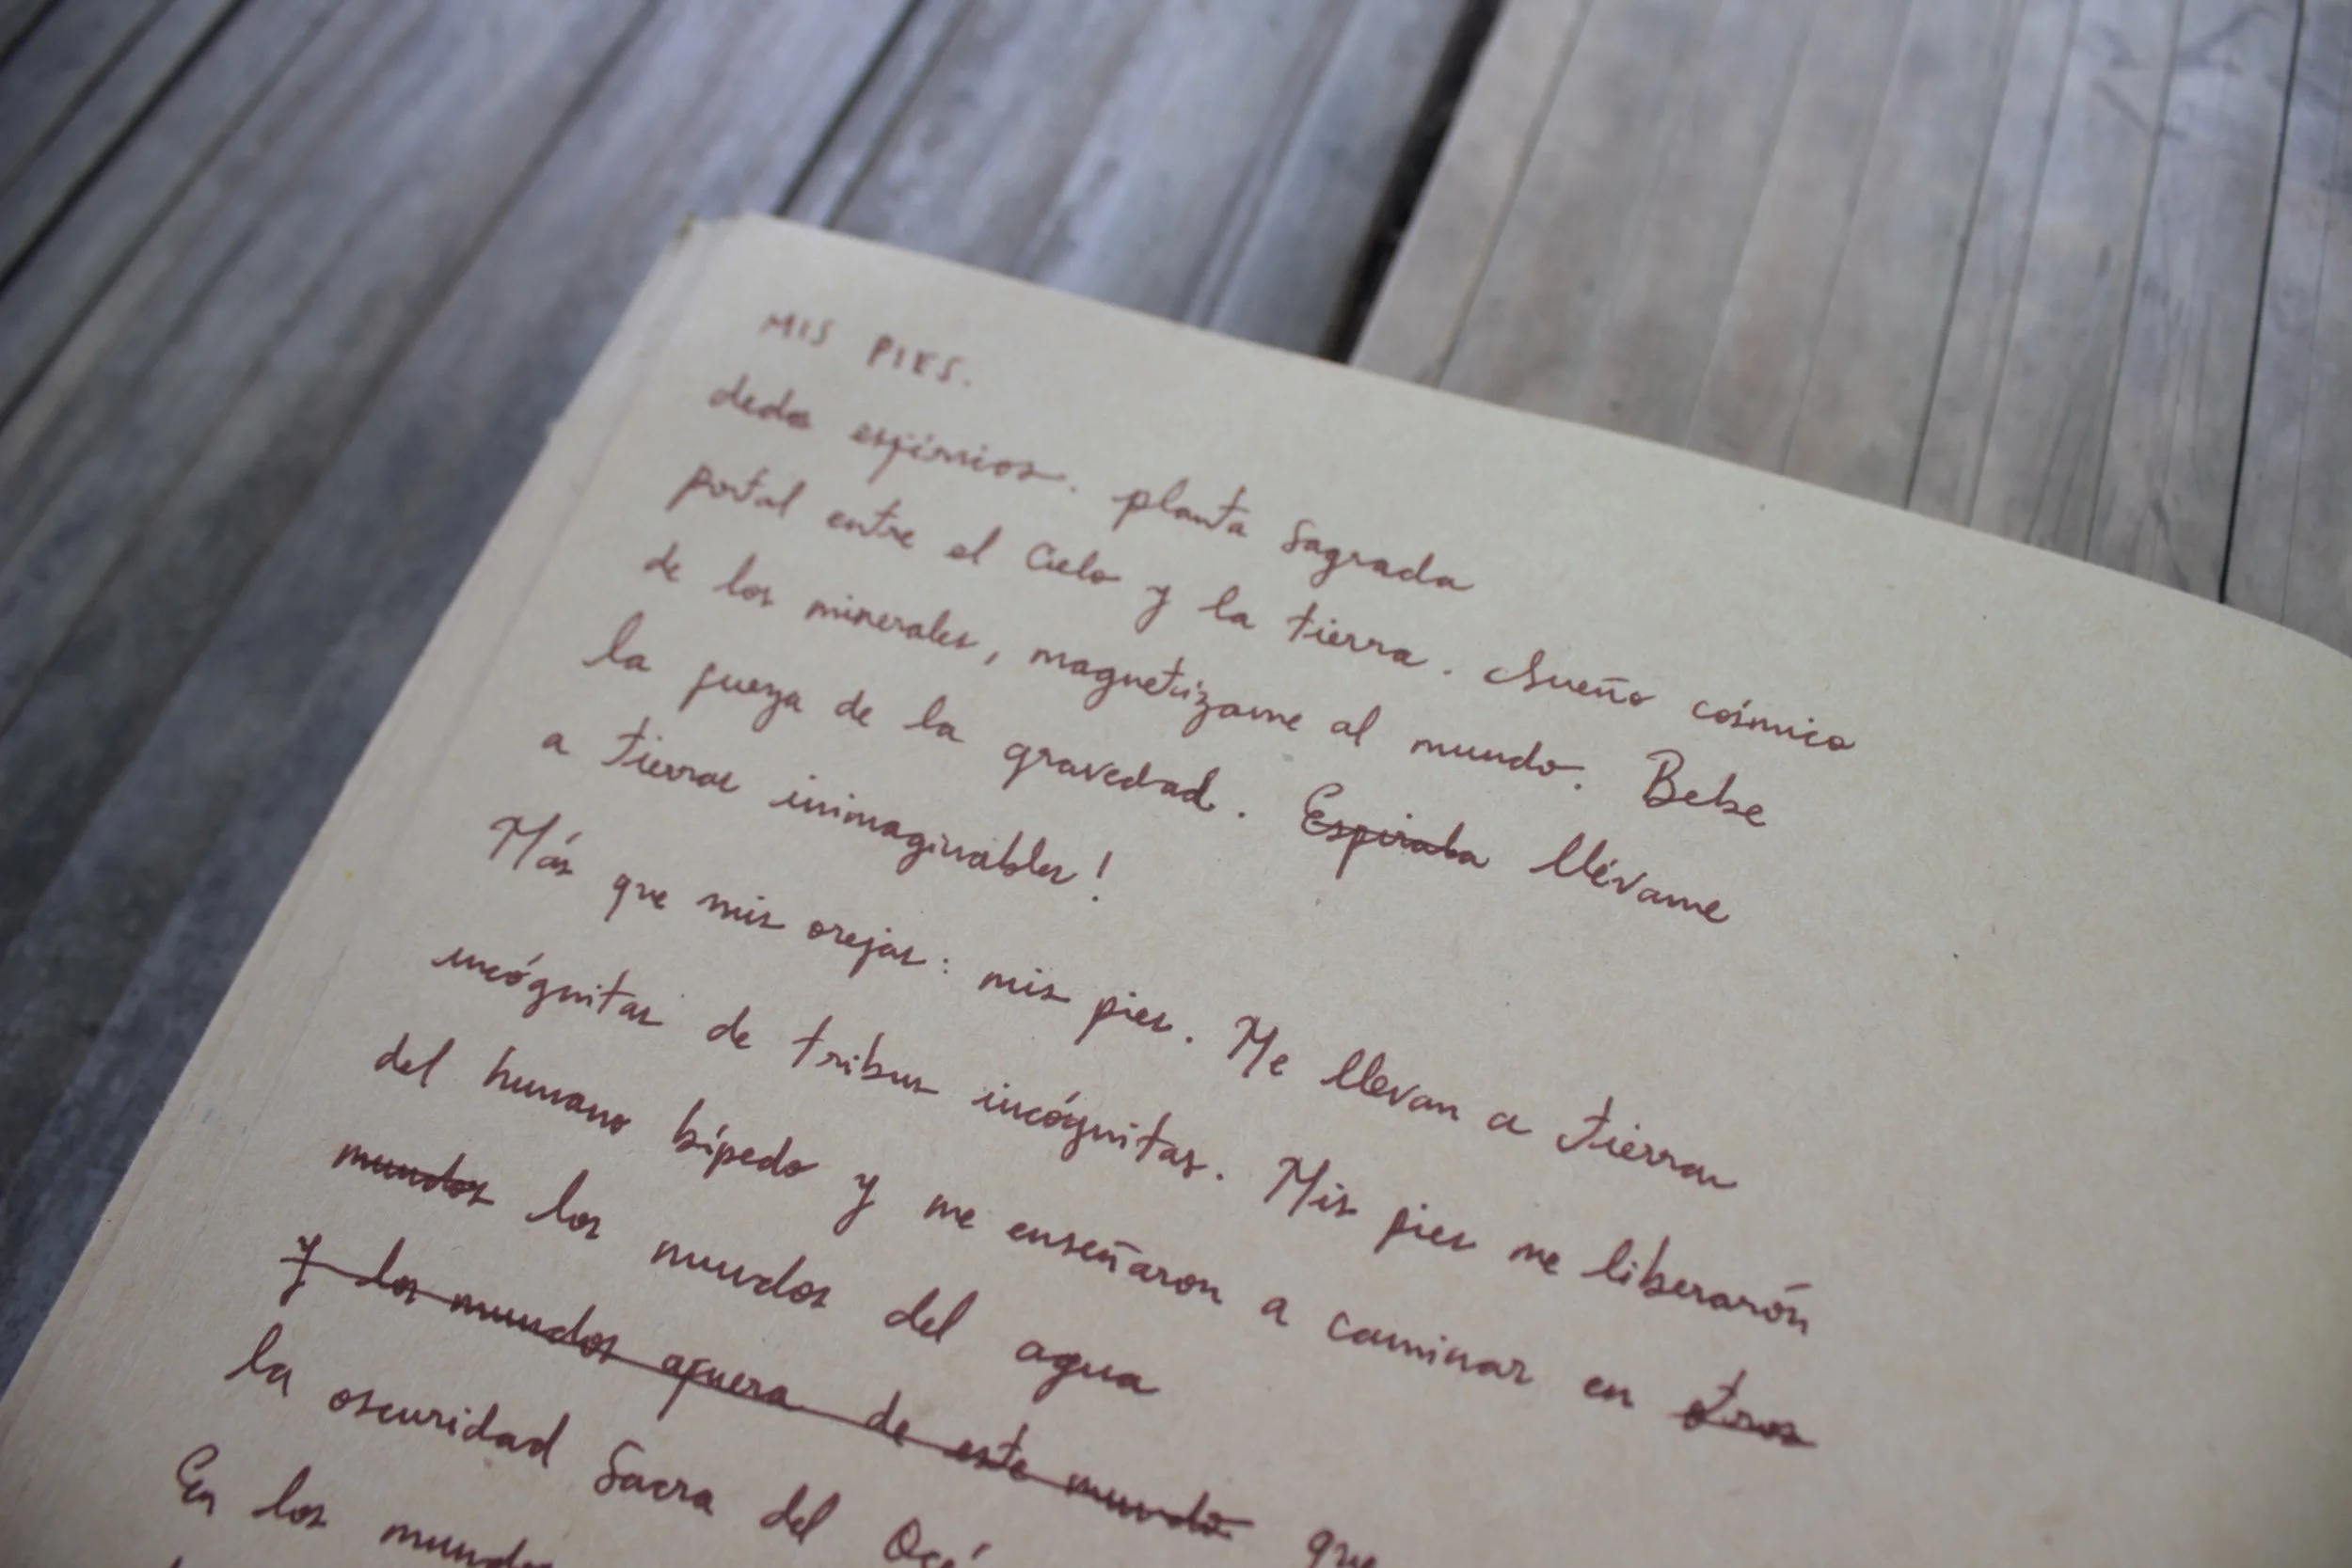 MIS PIES.
dedos esféricos. planta Sagrada
portal entre el Cielo y la tierra. Sueño cósmico
de los minerales, magnetizame al mundo. Bebe
la fuerza de la gravedad. Espiraba llévame
a tierras inimaginables!
Más que mis orejas: mis pies. Me llevan a tierras
incógnitas de tribus incógnitas. Mis pies me liberarón
del humano bípedo y me enseñaron a caminar en otros
mundos los mundos del agua
y los mundos afuera de este mundo que
la oscuridad Sacra del
En los